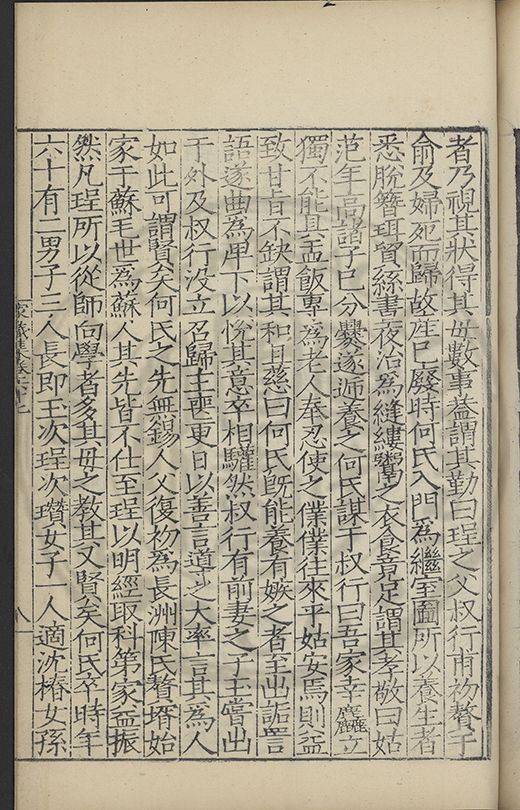 者乃視其狀得其母數事葢謂其勤曰珵之父叔行甫初贅于
俞及婦死而歸故産已廢時何氏入門為繼室圖所以養生者
悉脫簪珥貿絲書夜治為縫縷鬻之衣食竟足謂其孝敬曰姑
范年高諸子已分爨遂逓養之何氏謀于叔行曰吾家幸麤立
獨不能具盂飯專為老人奉忍使之僕僕往來乎姑安焉則益
致甘旨不缺謂其和且慈曰何氏既能養有嫉之者至出詬詈
語遂曲為卑下以悅其意卒相驩然叔行有前妻之子玉嘗出
于外及叔行没立召歸主喪更日以善言導之大率言其為人
如此可謂賢矣何氏之先無錫人父復初為長洲陳氏贅壻始
家于蘇毛世為蘇人其先皆不仕至珵以明經取科第家益振
然凡珵所以從師向學者多其母之教其又賢矣何氏卒時年
六十有二男子三人長即玉次珵次瓚女子一人適沈椿女孫